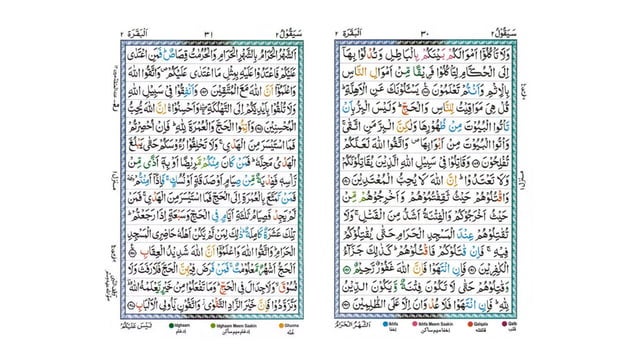 سَيَقُوْلُ ٢ ٣٠ اَلْبَقَرَة ٢
وَلَا تَاْكُلُوْٓا اَمْوَالَكُمْ بَيْنَكُمْ بِالْبَاطِلِ وَتُدْلُوْا بِهَآ
اِلَى الْحُكَّامِ لِتَاْكُلُوْا فَرِيْقًا مِّنْ اَمْوَالِ النَّاسِ
بِالْاِثْمِ وَاَنْتُمْ تَعْلَمُوْنَ ۝ يَسْـَٔلُوْنَكَ عَنِ الْاَهِلَّةِ ؕ
قُلْ هِيَ مَوَاقِيْتُ لِلنَّاسِ وَالْحَجِّ ؕ وَلَيْسَ الْبِرُّ بِاَنْ
تَاْتُوا الْبُيُوْتَ مِنْ ظُهُوْرِهَا وَلٰكِنَّ الْبِرَّ مَنِ اتَّقٰى ۚ
وَاْتُوا الْبُيُوْتَ مِنْ اَبْوَابِهَا ۪ وَاتَّقُوا اللّٰهَ لَعَلَّكُمْ
تُفْلِحُوْنَ ۝ وَقَاتِلُوْا فِيْ سَبِيْلِ اللّٰهِ الَّذِيْنَ يُقَاتِلُوْنَكُمْ
وَلَا تَعْتَدُوْا ؕ اِنَّ اللّٰهَ لَا يُحِبُّ الْمُعْتَدِيْنَ ۝
وَاقْتُلُوْهُمْ حَيْثُ ثَقِفْتُمُوْهُمْ وَاَخْرِجُوْهُمْ مِّنْ
حَيْثُ اَخْرَجُوْكُمْ وَالْفِتْنَةُ اَشَدُّ مِنَ الْقَتْلِ ۚ وَلَا
تُقٰتِلُوْهُمْ عِنْدَ الْمَسْجِدِ الْحَرَامِ حَتّٰى يُقٰتِلُوْكُمْ
فِيْهِ ۚ فَاِنْ قٰتَلُوْكُمْ فَاقْتُلُوْهُمْ ؕ كَذٰلِكَ جَزَآءُ
الْكٰفِرِيْنَ ۝ فَاِنِ انْتَهَوْا فَاِنَّ اللّٰهَ غَفُوْرٌ رَّحِيْمٌ ۝
وَقٰتِلُوْهُمْ حَتّٰى لَا تَكُوْنَ فِتْنَةٌ وَّيَكُوْنَ الدِّيْنُ
لِلّٰهِ ؕ فَاِنِ انْتَهَوْا فَلَا عُدْوَانَ اِلَّا عَلَى الظّٰلِمِيْنَ ۝
Ikhfa Ikhfa Meem Saakin Qalqala Qalb
اَلشَّهْرُ الْحَرَامُ
سَيَقُوْلُ ٢ ٣١ اَلْبَقَرَة ٢
اَلشَّهْرُ الْحَرَامُ بِالشَّهْرِ الْحَرَامِ وَالْحُرُمٰتُ قِصَاصٌ ؕ فَمَنِ اعْتَدٰى
عَلَيْكُمْ فَاعْتَدُوْا عَلَيْهِ بِمِثْلِ مَا اعْتَدٰى عَلَيْكُمْ ۪ وَاتَّقُوا اللّٰهَ
وَاعْلَمُوْٓا اَنَّ اللّٰهَ مَعَ الْمُتَّقِيْنَ ۝ وَاَنْفِقُوْا فِيْ سَبِيْلِ اللّٰهِ
وَلَا تُلْقُوْا بِاَيْدِيْكُمْ اِلَى التَّهْلُكَةِ ۛۚ وَاَحْسِنُوْا ۛۚ اِنَّ اللّٰهَ يُحِبُّ
الْمُحْسِنِيْنَ ۝ وَاَتِمُّوا الْحَجَّ وَالْعُمْرَةَ لِلّٰهِ ؕ فَاِنْ اُحْصِرْتُمْ
فَمَا اسْتَيْسَرَ مِنَ الْهَدْيِ ۚ وَلَا تَحْلِقُوْا رُءُوْسَكُمْ حَتّٰى يَبْلُغَ
الْهَدْيُ مَحِلَّهٗ ؕ فَمَنْ كَانَ مِنْكُمْ مَّرِيْضًا اَوْ بِهٖٓ اَذًى مِّنْ
رَّاْسِهٖ فَفِدْيَةٌ مِّنْ صِيَامٍ اَوْ صَدَقَةٍ اَوْ نُسُكٍ ۚ فَاِذَآ اَمِنْتُمْ ۥ
فَمَنْ تَمَتَّعَ بِالْعُمْرَةِ اِلَى الْحَجِّ فَمَا اسْتَيْسَرَ مِنَ الْهَدْيِ ۚ فَمَنْ
لَّمْ يَجِدْ فَصِيَامُ ثَلٰثَةِ اَيَّامٍ فِي الْحَجِّ وَسَبْعَةٍ اِذَا رَجَعْتُمْ ؕ
تِلْكَ عَشَرَةٌ كَامِلَةٌ ؕ ذٰلِكَ لِمَنْ لَّمْ يَكُنْ اَهْلُهٗ حَاضِرِي الْمَسْجِدِ
الْحَرَامِ ؕ وَاتَّقُوا اللّٰهَ وَاعْلَمُوْٓا اَنَّ اللّٰهَ شَدِيْدُ الْعِقَابِ ۝
اَلْحَجُّ اَشْهُرٌ مَّعْلُوْمٰتٌ ۚ فَمَنْ فَرَضَ فِيْهِنَّ الْحَجَّ فَلَا رَفَثَ وَلَا
فُسُوْقَ ۙ وَلَا جِدَالَ فِي الْحَجِّ ؕ وَمَا تَفْعَلُوْا مِنْ خَيْرٍ يَّعْلَمْهُ اللّٰهُ ؔؕ
وَتَزَوَّدُوْا فَاِنَّ خَيْرَ الزَّادِ التَّقْوٰى ؗ وَاتَّقُوْنِ يٰٓاُولِي الْاَلْبَابِ ۝
Idghaam Idghaam Meem Saakin Ghunna
لَيْسَ عَلَيْكُمْ